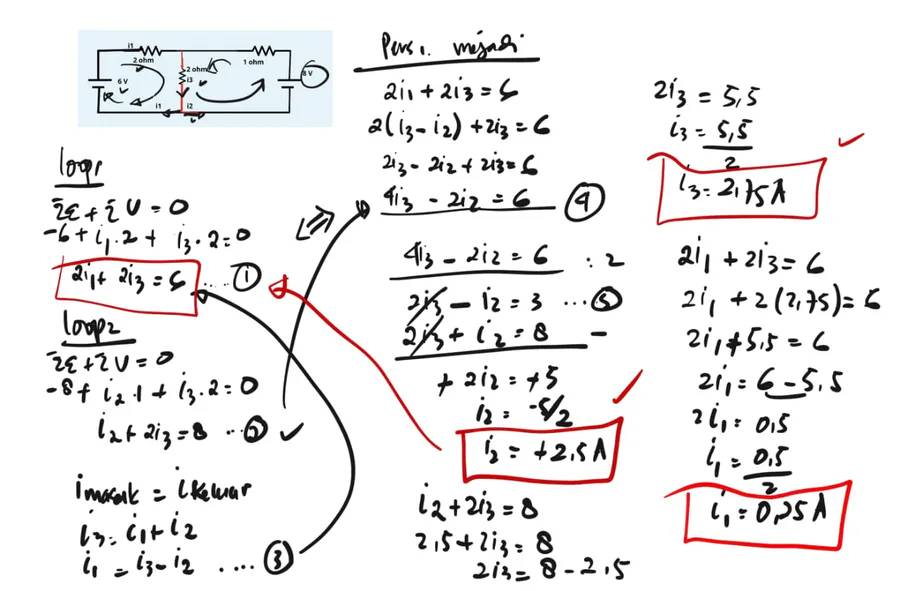 i1
2 ohm
1 ohm
2 ohm
i3
6 V
8 V
i1
i2
loop1
Σε + ΣV = 0
-6 + i₁·2 + i₃·2 = 0
2i₁ + 2i₃ = 6 .... ①
loop2
Σε + ΣV = 0
-8 + i₂·1 + i₃·2 = 0
i₂ + 2i₃ = 8 ... ②
i masuk = i keluar
i₃ = i₁ + i₂
i₁ = i₃ - i₂ .... ③
Pers 1. mejadi
2i₁ + 2i₃ = 6
2(i₃ - i₂) + 2i₃ = 6
2i₃ - 2i₂ + 2i₃ = 6
4i₃ - 2i₂ = 6 ④
4i₃ - 2i₂ = 6 : 2
2i₃ - i₂ = 3 ... ⑤
2i₃ + i₂ = 8 -
+ 2i₂ = +5
i₂ = -5/2
i₂ = +2,5 A
i₂ + 2i₃ = 8
2,5 + 2i₃ = 8
2i₃ = 8 - 2,5
2i₃ = 5,5
i₃ = 5,5
2
i₃ = 2,75 A
2i₁ + 2i₃ = 6
2i₁ + 2(2,75) = 6
2i₁ + 5,5 = 6
2i₁ = 6 - 5,5
2i₁ = 0,5
i₁ = 0,5
2
i₁ = 0,25 A